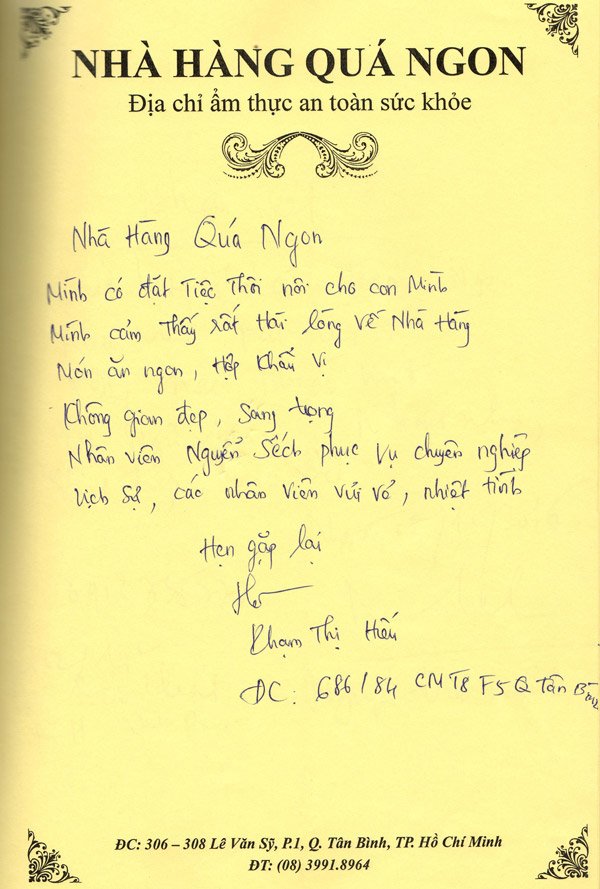 NHÀ HÀNG QUÁ NGON
Địa chỉ ẩm thực an toàn sức khỏe
Nhà Hàng Quá Ngon
Mình có đặt Tiệc Thôi nôi cho con Mình
Mình cảm Thấy rất Hài lòng về Nhà Hàng
Món ăn ngon, Hợp Khẩu Vị
Không gian đẹp, Sang trọng
Nhân viên Nguyễn Sếch phục vụ chuyên nghiệp
lịch sự, các nhân viên vui vẻ, nhiệt tình
Hẹn gặp lại
Phạm Thị Hiếu
ĐC: 686/84 CMT8 F5 Q Tân Bình
ĐC: 306 – 308 Lê Văn Sỹ, P.1, Q. Tân Bình, TP. Hồ Chí Minh
ĐT: (08) 3991.8964